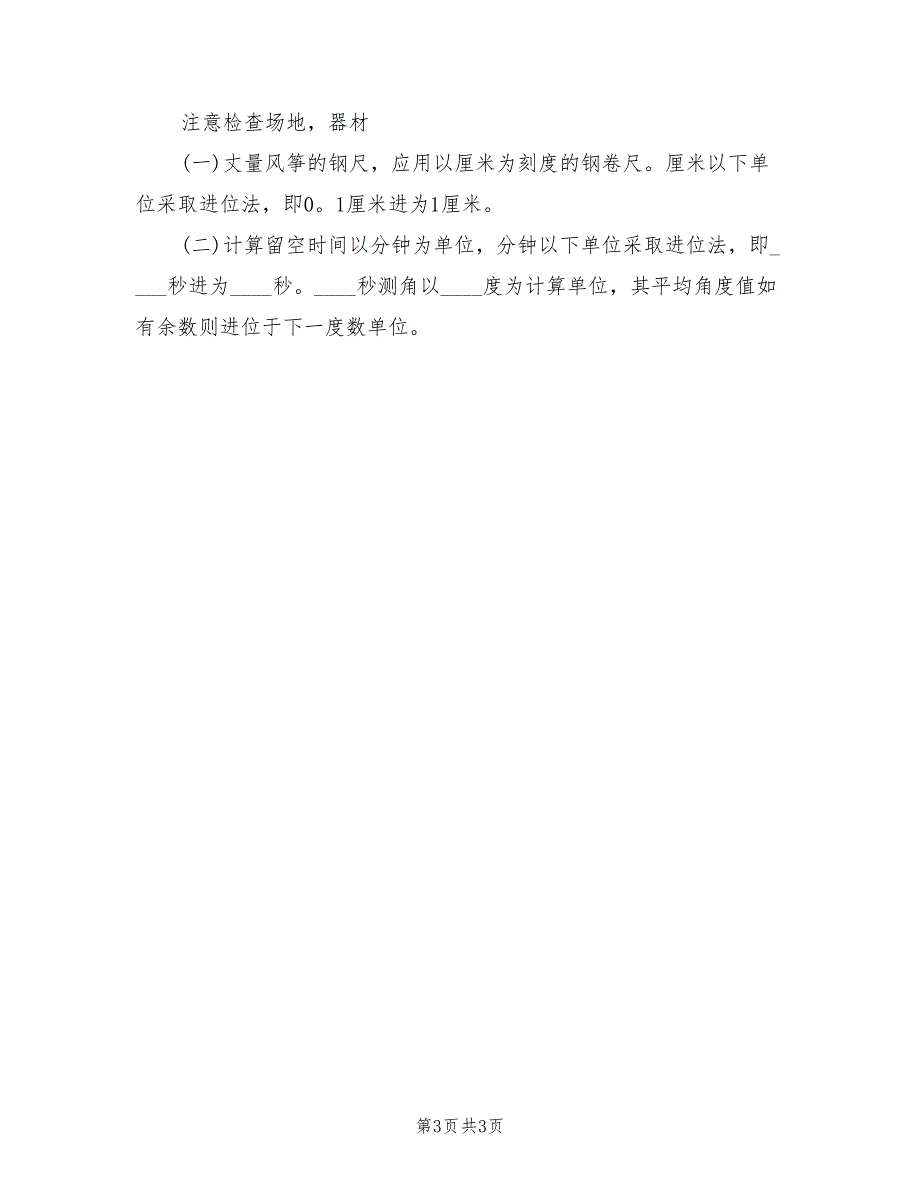 注意检查场地，器材
(一)丈量风筝的钢尺，应用以厘米为刻度的钢卷尺。厘米以下单
位采取进位法，即0。1厘米进为1厘米。
(二)计算留空时间以分钟为单位，分钟以下单位采取进位法，即_
___秒进为____秒。____秒测角以____度为计算单位，其平均角度值如
有余数则进位于下一度数单位。
第3页共3页